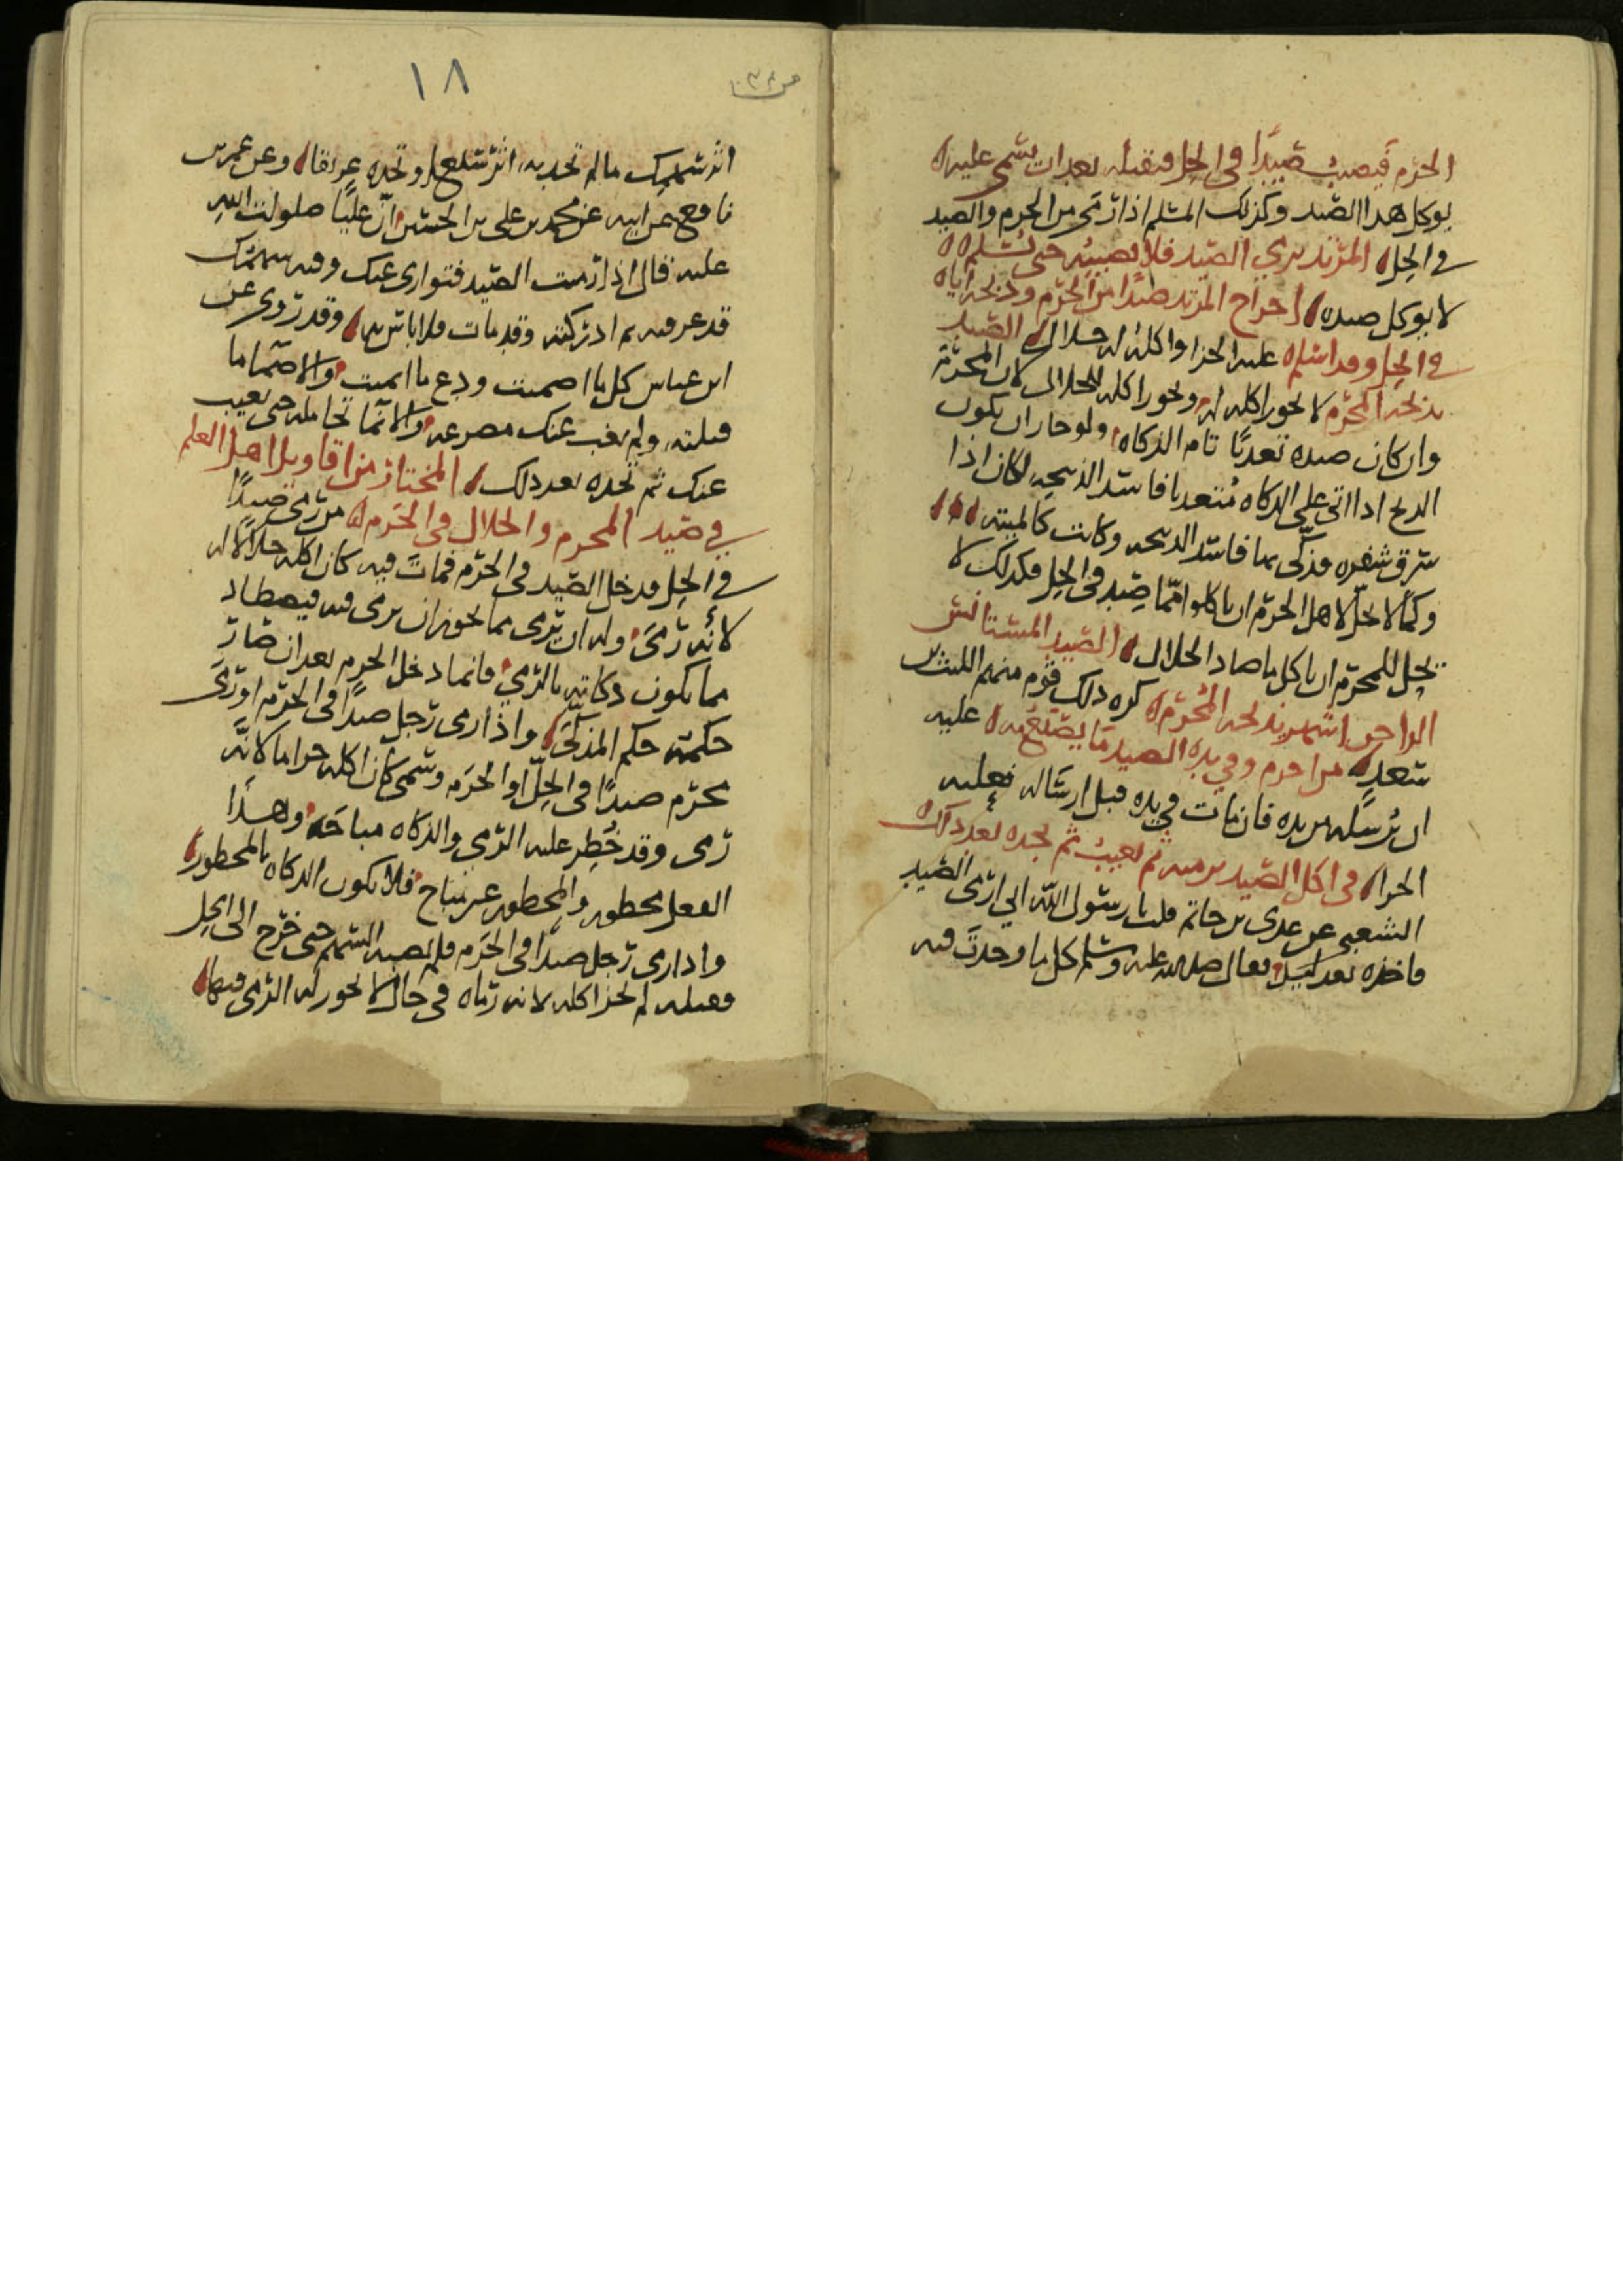 الحرم فيصيب صيدا في الحل فيقتله بعد ان يسمى عليه
يوكل هذا الصيد وكذلك المسلم اذا رمى من الحرم والصيد
في الحل المرتد يرمي الصيد فلا يصيبه حتى يسلم
لا يوكل صيده اخراج المرتد صيدا من الحرم وذبحه اياه
في الحل وقد اسلم عليه الجزا واكله له حلال الصيد
يذبحه المحرم لا يجوز اكله له ويجوز اكله للحلال لان المحرم
وان كان صيده تعديا تام الذكاه ولو جاز ان يكون
الذبح اذا اتى على الذكاه متعديا فاسد الذبيحه لكان اذا
سرق شفره فذكى بها فاسد الذبيحه وكانت كالميته
وكما لا يحل لاهل الحرم ان ياكلوا مما صيد في الحل فكذلك لا
يحل للمحرم ان ياكل ما صاد الحلال الصيد المستانس
الداجن اشهر يذبحه المحرم كره ذلك قوم منهم الليث بن
سعد من احرم وفي يده الصيد ما يصنع به عليه
ان يرسله من يده فان مات في يده قبل ارساله فعليه
الجزا في اكل الصيد يرميه ثم يغيب ثم يجده بعد ذلك
الشعبي عن عدي بن حاتم قلت يا رسول الله اني ارمى الصيد
فاخذه بعد ليل فقال صلى الله عليه وسلم كل ما وجدت فيه
١٨
اثر سهمك ما لم تجد به اثر سبع او تجده غريقا وعن عمر بن
نافع عن ابيه عن محمد بن علي بن الحسين ان عليا صلوات الله
عليه قال اذا رميت الصيد فتوارى عنك وفيه سهمك
قد عرفته ثم ادركته وقد مات فلا باس به وقد روى عن
ابن عباس كل ما اصميت ودع ما انميت والاصما ما
قتلته ولم يغب عنك مصرعه والانما تحامله حتى يغيب
عنك ثم تجده بعد ذلك المختار من اقاويل اهل العلم
في صيد المحرم والحلال في الحرم من رمى صيدا
في الحل فدخل الصيد في الحرم فمات فيه كان اكله حلالا له
لانه رمى وله ان يرمى بما يجوز ان يرمى فيه فيصطاد
مما يكون ذكاته بالرمي فانما دخل الحرم بعد ان صار
حكمه حكم المذكى واذا رمى رجل صيدا في الحرم او رمى
محرم صيدا في الحل او الحرم وسمى كان اكله حراما لانه
رمى وقد حظر عليه الرمي والذكاه مباحه وهذا
الفعل محظور والمحظور غير مباح فلا يكون الذكاه بالمحظور
واذا رمى رجل صيدا في الحرم فلم يصبه السهم حتى خرج الى الحل
فقتله لم يجز اكله لانه رماه في حال لا يجوز له الرمي فيها